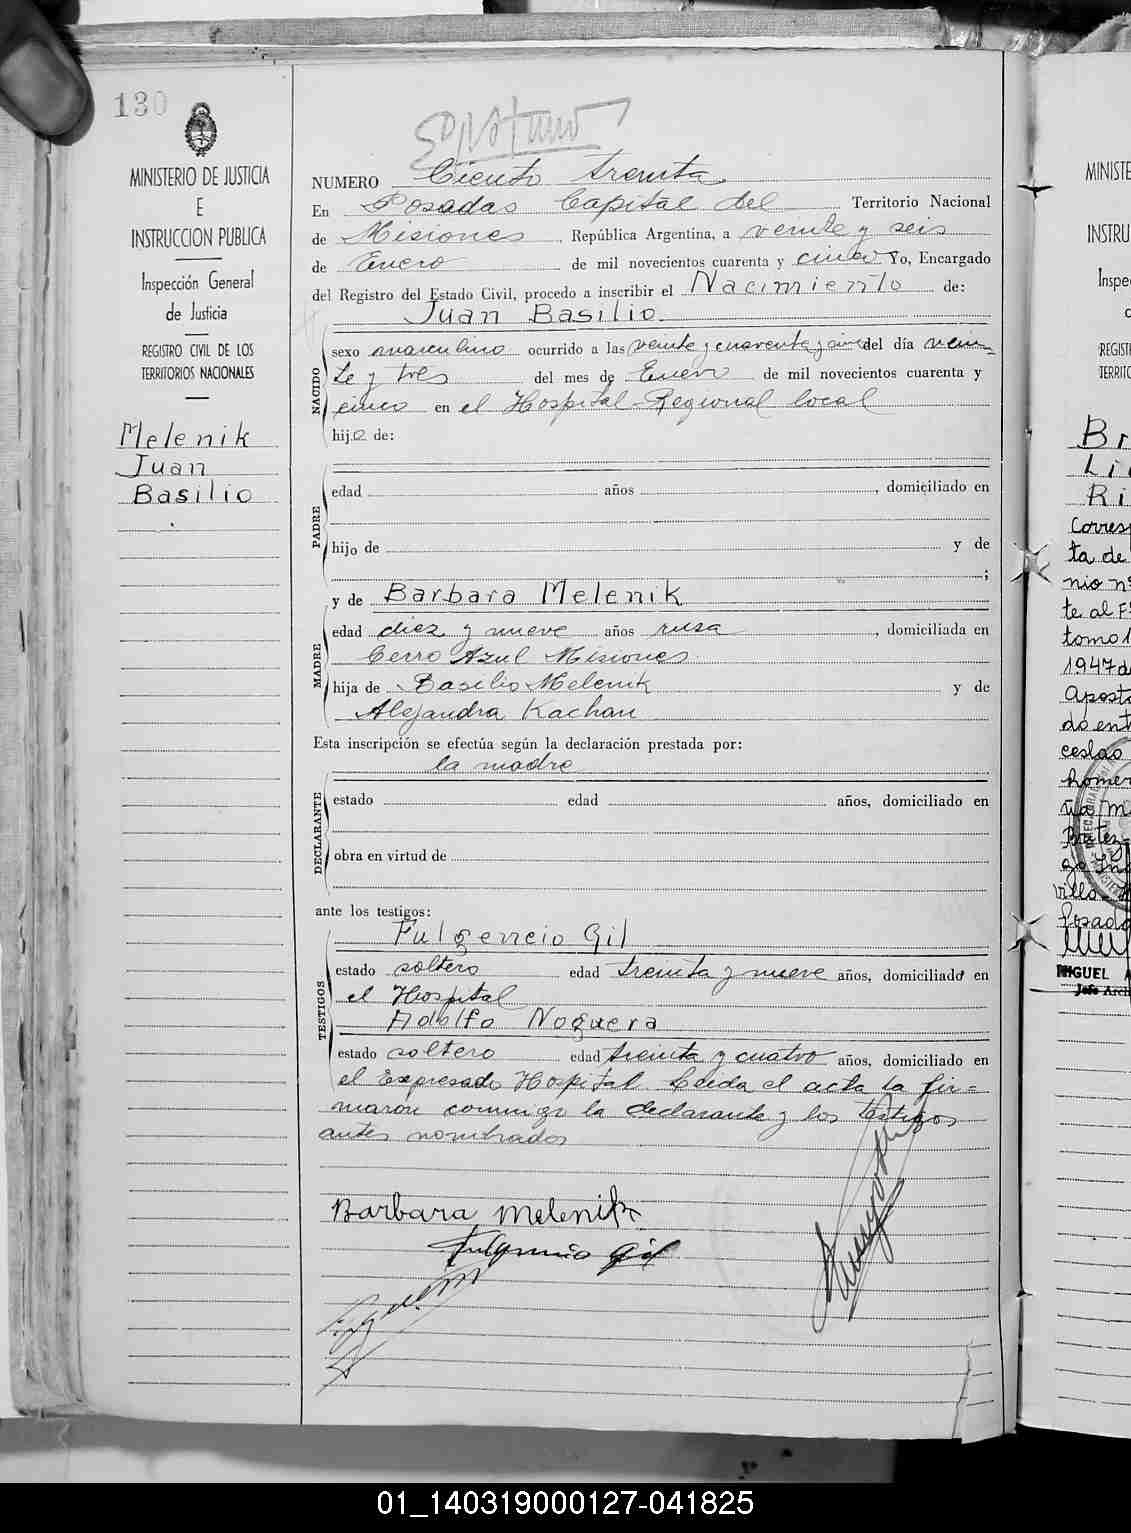 130
MINISTERIO DE JUSTICIA
E
INSTRUCCION PUBLICA
Inspección General
de Justicia
REGISTRO CIVIL DE LOS
TERRITORIOS NACIONALES
Melenik
Juan
Basilio
NUMERO Ciento treinta
En Posadas Capital del Territorio Nacional
de Misiones, República Argentina, a veinte y seis
de Enero de mil novecientos cuarenta y cinco Yo, Encargado
del Registro del Estado Civil, procedo a inscribir el Nacimiento de:
Juan Basilio.
NACIDO
sexo masculino ocurrido a las veinte y cuarenta y cinco del día vein-
te y tres del mes de Enero de mil novecientos cuarenta y
cinco en el Hospital Regional local
hijo de:
PADRE
edad años , domiciliado en
hijo de y de
;
y de Barbara Melenik
MADRE
edad diez y nueve años rusa , domiciliada en
Cerro Azul Misiones
hija de Basilio Melenik y de
Alejandra Kachan
Esta inscripción se efectúa según la declaración prestada por:
la madre
DECLARANTE
estado edad años, domiciliado en
obra en virtud de
ante los testigos:
TESTIGOS
Fulgencio Gil
estado soltero edad treinta y nueve años, domiciliado en
el Hospital
Adolfo Noguera
estado soltero edad treinta y cuatro años, domiciliado en
el Expresado Hospital. Leida el acta la fir=
maron conmigo la declarante y los testigos
antes nombrados
Barbara Melenik
Fulgencio Gil
MINISTE
INSTRU
Inspec
REGIST
TERRITO
Br
Li
Ri
Corres
ta de
nio nº
te al Fº
tomo 1
1947 d
Aposto
do ent
ceslao
homer
Posada
MIGUEL A
Jefe Arch
01_140319000127-041825